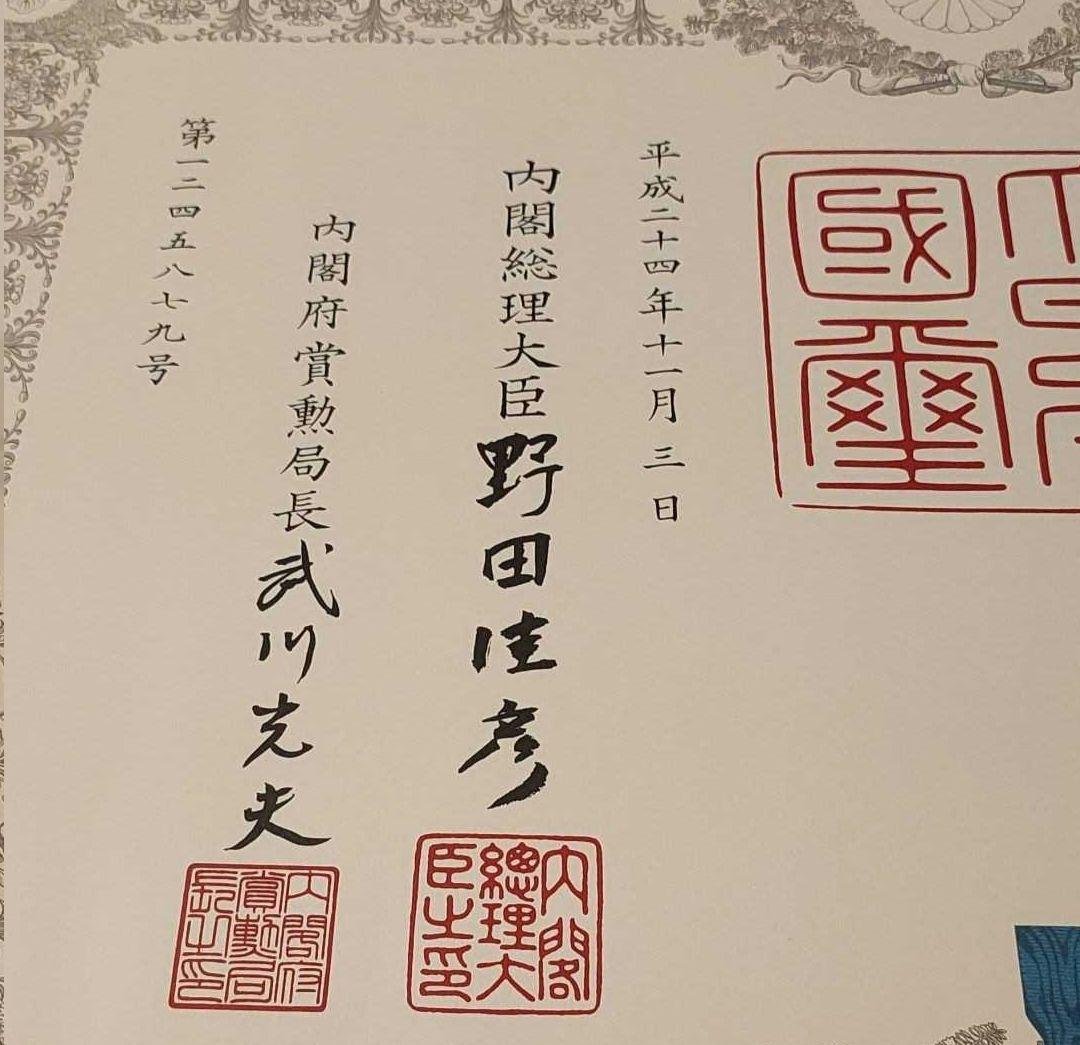 國璽
平成二十四年十一月三日
内閣総理大臣 野田佳彦
内閣總理大臣之印
内閣府賞勲局長 武川光夫
内閣府賞勲局長之印
第一二四五八七九号